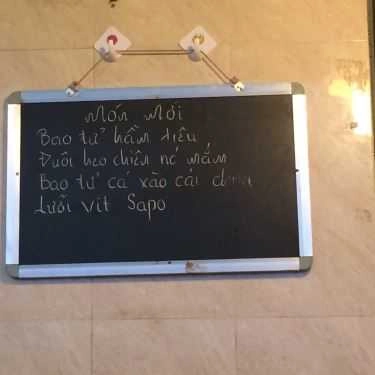 Món Mới
Bao tử hầm tiêu
Đuôi heo chiên nc mắm
Bao tử cá xào cải chua
Lưỡi vịt Sapo